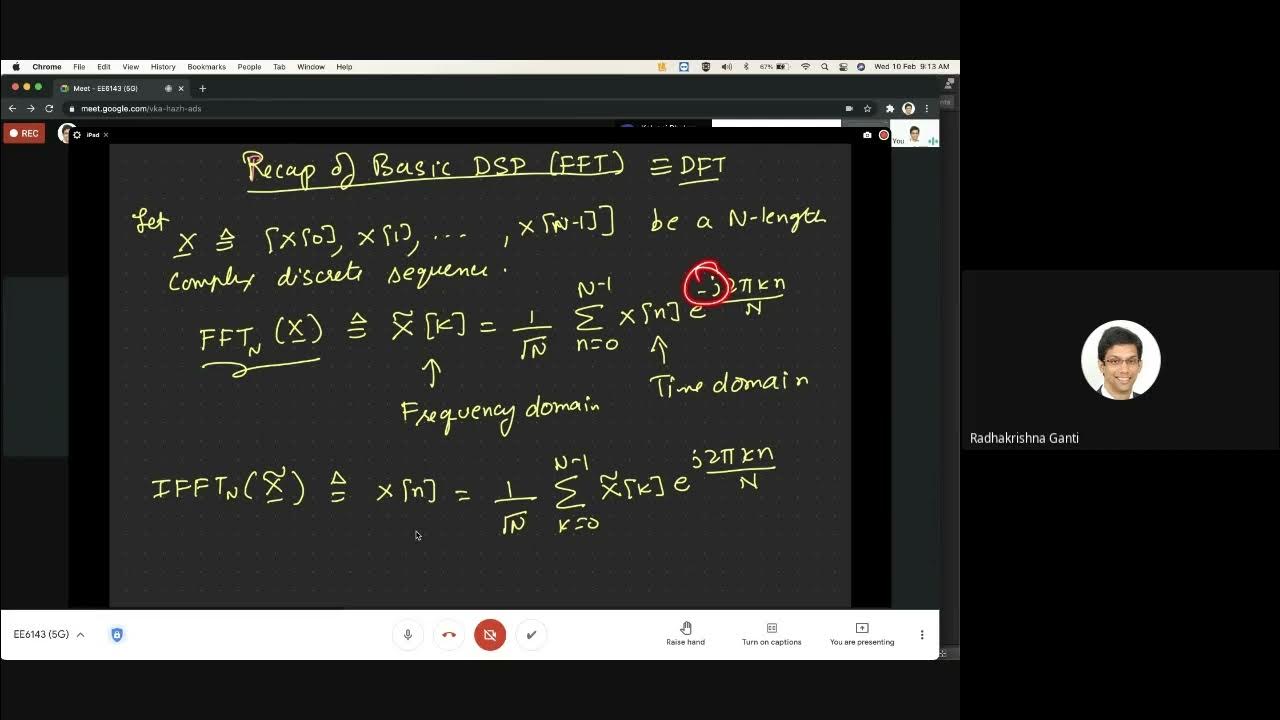 Chrome File Edit View History Bookmarks People Tab Window Help 67% Wed 10 Feb 9:13 AM
Meet - EE6143 (5G)
meet.google.com/vka-hazh-ads
REC
iPad
You
Recap of Basic DSP (FFT) ≡ DFT
Let X ≜ [X[0], X[1], ... , X[N-1]] be a N-length
Complex discrete sequence.
FFT_N (X) ≜ X̃[K] = 1/√N Σ_{n=0}^{N-1} x[n] e^{-j2πkn/N}
Frequency domain
Time domain
IFFT_N(X̃) ≜ x[n] = 1/√N Σ_{k=0}^{N-1} X̃[k] e^{j2πkn/N}
Radhakrishna Ganti
EE6143 (5G)
Raise hand
Turn on captions
You are presenting